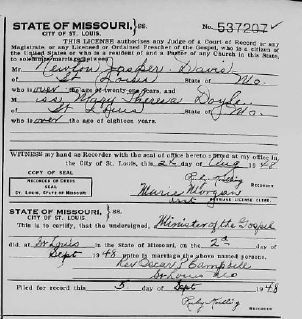 STATE OF MISSOURI, } SS. No. 537207
CITY OF ST. LOUIS.
THIS LICENSE authorizes any Judge of a Court of Record or any
Magistrate or any Licensed or Ordained Preacher of the Gospel, who is a citizen of
the United States or who is a resident of and a Pastor of any Church in this State,
to solemnize marriage between
M Newton Jasper Davis
of St Louis State of Mo.
who is over the age of twenty-one years, and
M iss Mary Theresa Doyle
of St Louis State of Mo
who is over the age of eighteen years.
WITNESS my hand as Recorder with the seal of office hereto affixed at my office in
the City of St. Louis, this 26 day of Aug 1948
COPY OF SEAL
RECORDER OF DEEDS
SEAL
ST. LOUIS, STATE OF MISSOURI
Marie Morgan
MARRIAGE LICENSE CLERK.
STATE OF MISSOURI, } SS.
CITY OF ST. LOUIS
This is to certify, that the undersigned, Minister of the Gospel
did at St Louis in the State of Missouri, on the 2nd day of
Sept 1948 unite in marriage the above named persons.
Rev Oscar S Campbell
St Louis Mo
Filed for record this 5 day of Sept 1948